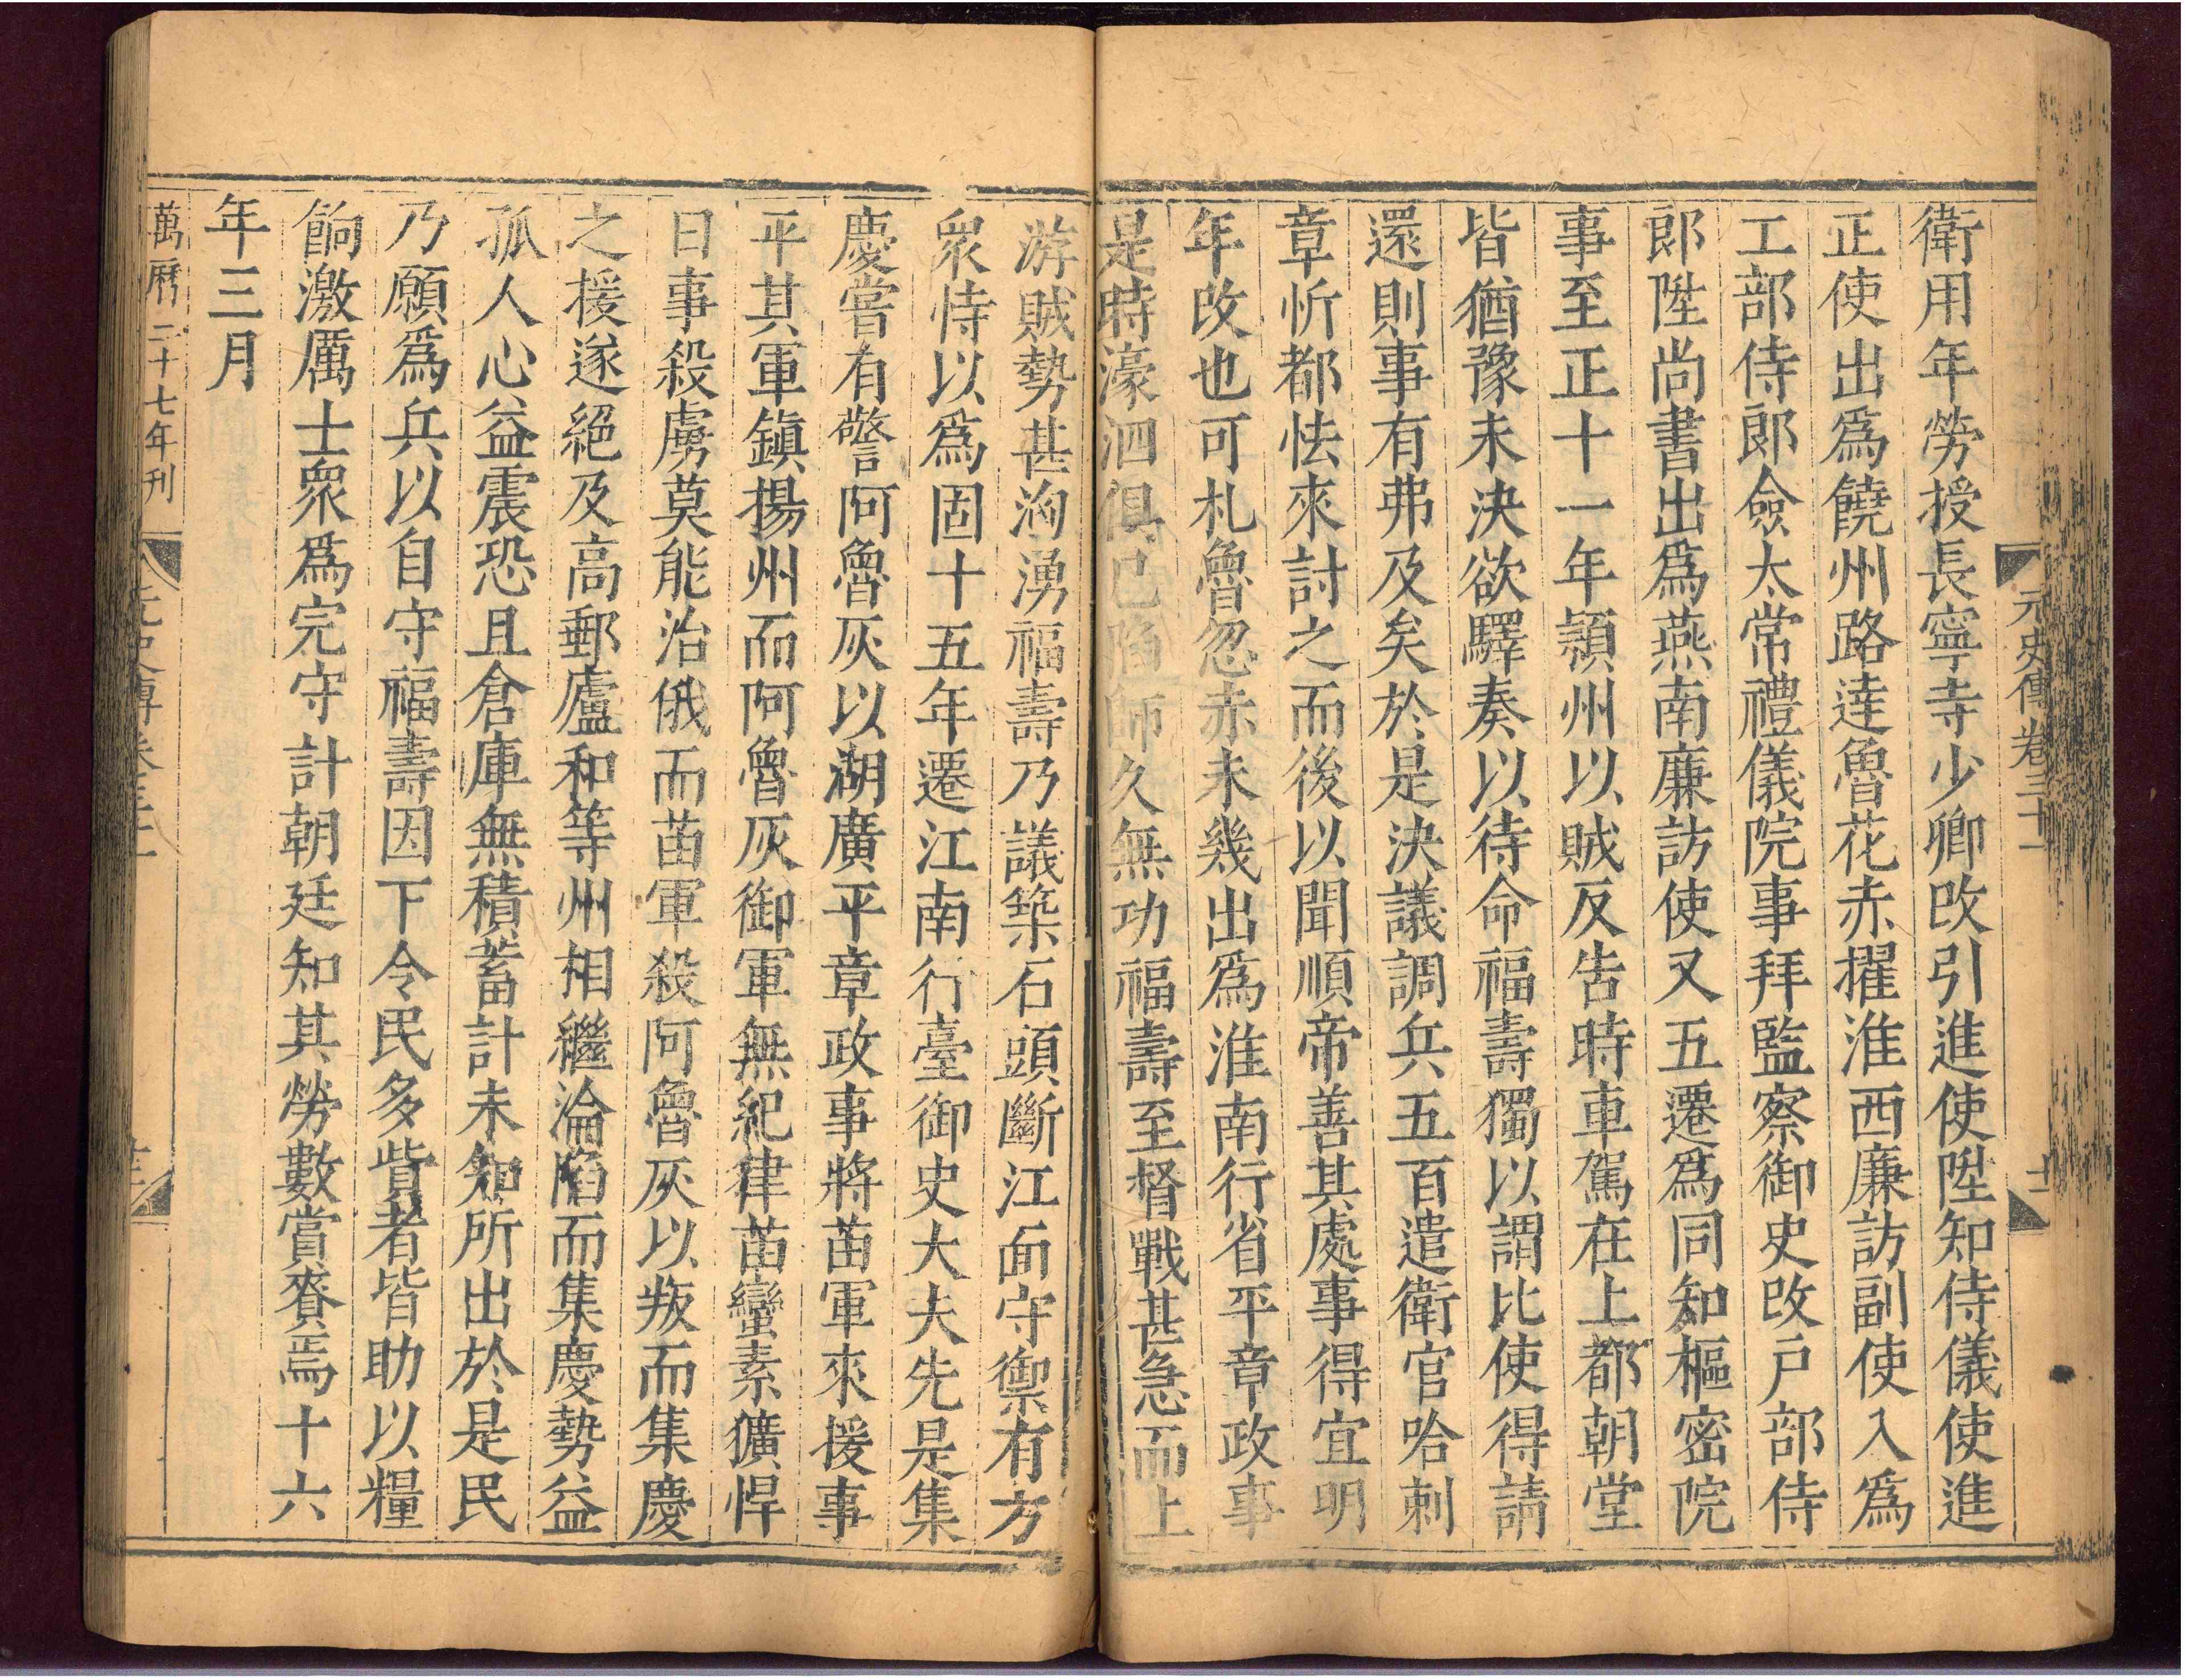 元史傳卷三十一
十二
衛用年勞授長寧寺少卿改引進使陞知侍儀使進
正使出爲饒州路達魯花赤擢淮西廉訪副使入爲
工部侍郎僉太常禮儀院事拜監察御史改戶部侍
郎陞尚書出爲燕南廉訪使又五遷爲同知樞密院
事至正十一年潁州以賊反告時車駕在上都朝堂
皆猶豫未決欲驛奏以待命福壽獨以謂比使得請
還則事有弗及矣於是決議調兵五百遣衛官哈剌
章忻都怯來討之而後以聞順帝善其處事得宜明
年改也可札魯忽赤未幾出爲淮南行省平章政事
是時濠泗俱已陷師久無功福壽至督戰甚急而上
游賊勢甚洶湧福壽乃議築石頭斷江面守禦有方
衆恃以爲固十五年遷江南行臺御史大夫先是集
慶嘗有警阿魯灰以湖廣平章政事將苗軍來援事
平其軍鎮揚州而阿魯灰御軍無紀律苗蠻素獷悍
日事殺虜莫能治俄而苗軍殺阿魯灰以叛而集慶
之援遂絕及高郵廬和等州相繼淪陷而集慶勢益
孤人心益震恐且倉庫無積蓄計未知所出於是民
乃願爲兵以自守福壽因下令民多貲者皆助以糧
餉激厲士衆爲完守計朝廷知其勞數賞賚焉十六
年三月
萬曆二十七年刊
元史傳卷三十一